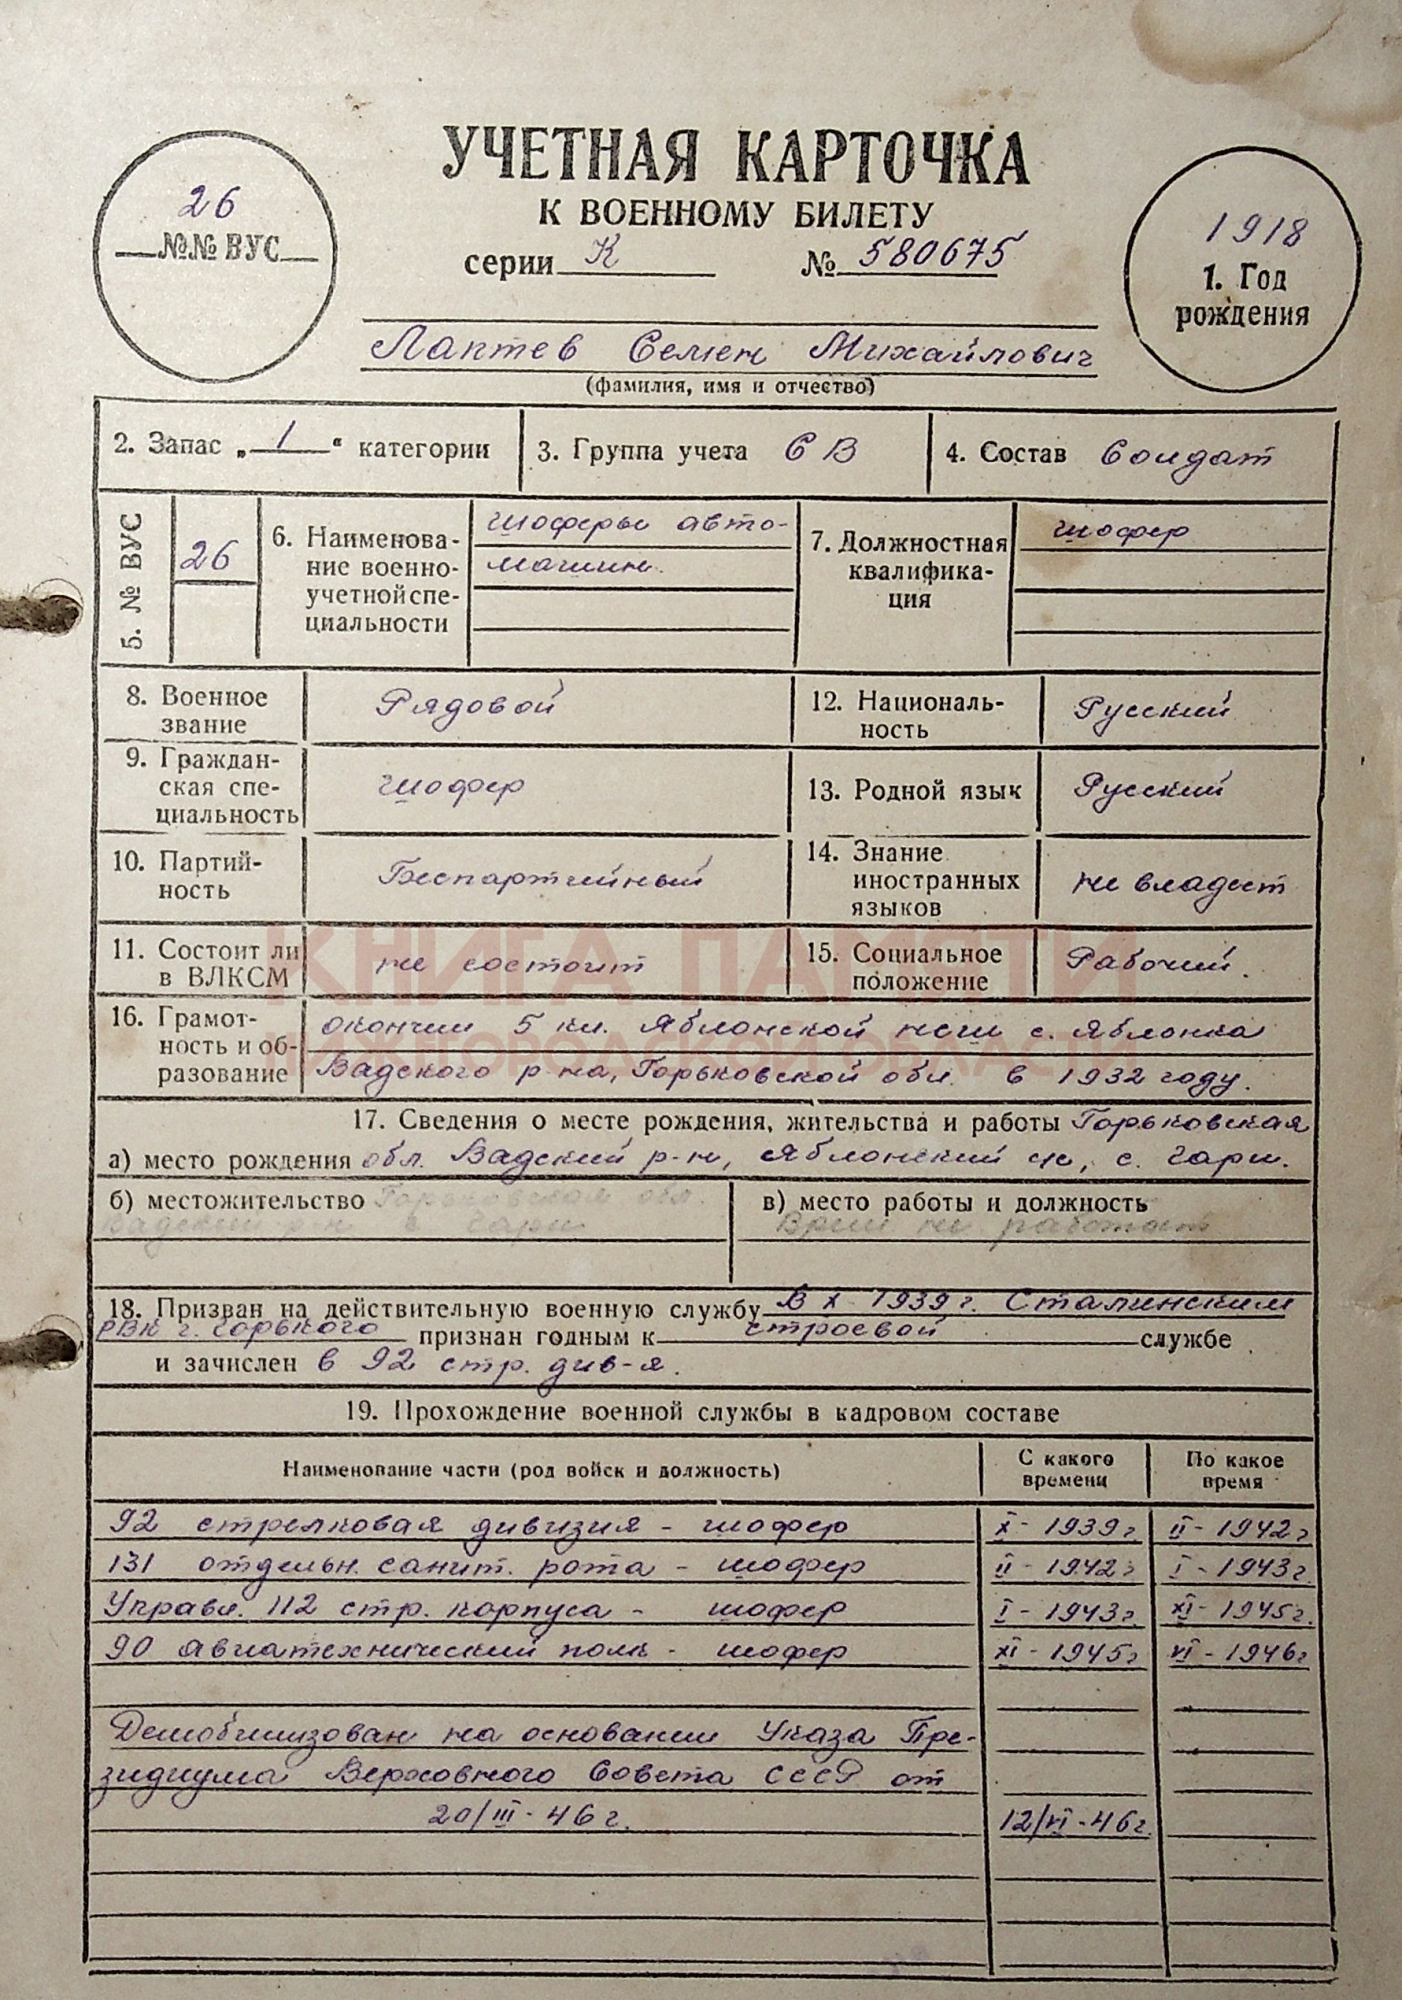 УЧЕТНАЯ КАРТОЧКА
К ВОЕННОМУ БИЛЕТУ
серии К № 580675
26
№№ ВУС
1918
1. Год
рождения
Лаптев Семен Михайлович
(фамилия, имя и отчество)
2. Запас „1“ категории
3. Группа учета СВ
4. Состав Солдат
5. № ВУС
26
6. Наименова-
ние военно-
учетной спе-
циальности
шоферы авто-
машин.
7. Должностная
квалифика-
ция
шофер
8. Военное
звание
Рядовой
12. Националь-
ность
Русский
9. Граждан-
ская спе-
циальность
шофер
13. Родной язык
Русский
10. Партий-
ность
Беспартийный
14. Знание
иностранных
языков
не владеет
11. Состоит ли
в ВЛКСМ
не состоит
15. Социальное
положение
Рабочий.
КНИГА ПАМЯТИ
НИЖЕГОРОДСКОЙ ОБЛАСТИ
16. Грамот-
ность и об-
разование
окончил 5 кл. Яблонской нсш с. Яблонка
Вадского р-на, Горьковской обл. в 1932 году.
17. Сведения о месте рождения, жительства и работы Горьковская
а) место рождения обл. Вадский р-н, Яблонский с/с, с. Гари.
б) местожительство Горьковская обл.
Вадский р-н с. Гари
в) место работы и должность
Врем. не работает
18. Призван на действительную военную службу В X 1939 г. Сталинским
РВК г. Горького признан годным к строевой службе
и зачислен в 92 стр. див-я.
19. Прохождение военной службы в кадровом составе
Наименование части (род войск и должность)
С какого
времени
По какое
время
92 стрелковая дивизия - шофер X - 1939 г II - 1942 г
131 отдельн. санит. рота - шофер II - 1942 г I - 1943 г.
Управл. 112 стр. корпуса - шофер I - 1943 г. XI - 1945 г.
90 авиатехнический полк - шофер XI - 1945 г VI - 1946 г
Демобилизован на основании Указа Пре-
зидиума Верховного Совета СССР от
20/III - 46 г. 12/VI - 46 г.